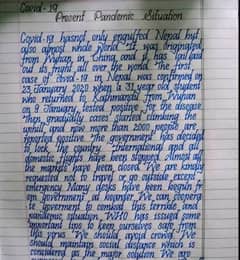 Covid-19
Present Pandemic Situation
Covid-19 hasnot only engulfed Nepal but
also almost whole world. It was originated
from Wuhan in China and it has
out its fruit all over the world. The first
case of covid-19 in Nepal was confirmed on
23 January 2020 when a 31 year old student
who returned to Kathmandu from Wuhan
on 9 January, tested positive for the disease
Then gradually cases started climbing the
uphill and now more than 2000 people are
reported positive. The government has decided
to lock the country. International and all
domestic flights have been stopped. Almost all
the markets have been closed. We are kindly
requested not to travel or go outside except
emergency. Many desks have been begun from
government at
government to combat this terrible and
pandemic situation. WHO has issued some
important tips to keep ourselves safe from
this virus. We should avoid crowd. We
should maintain social distance which is
considered as the major solution. We are